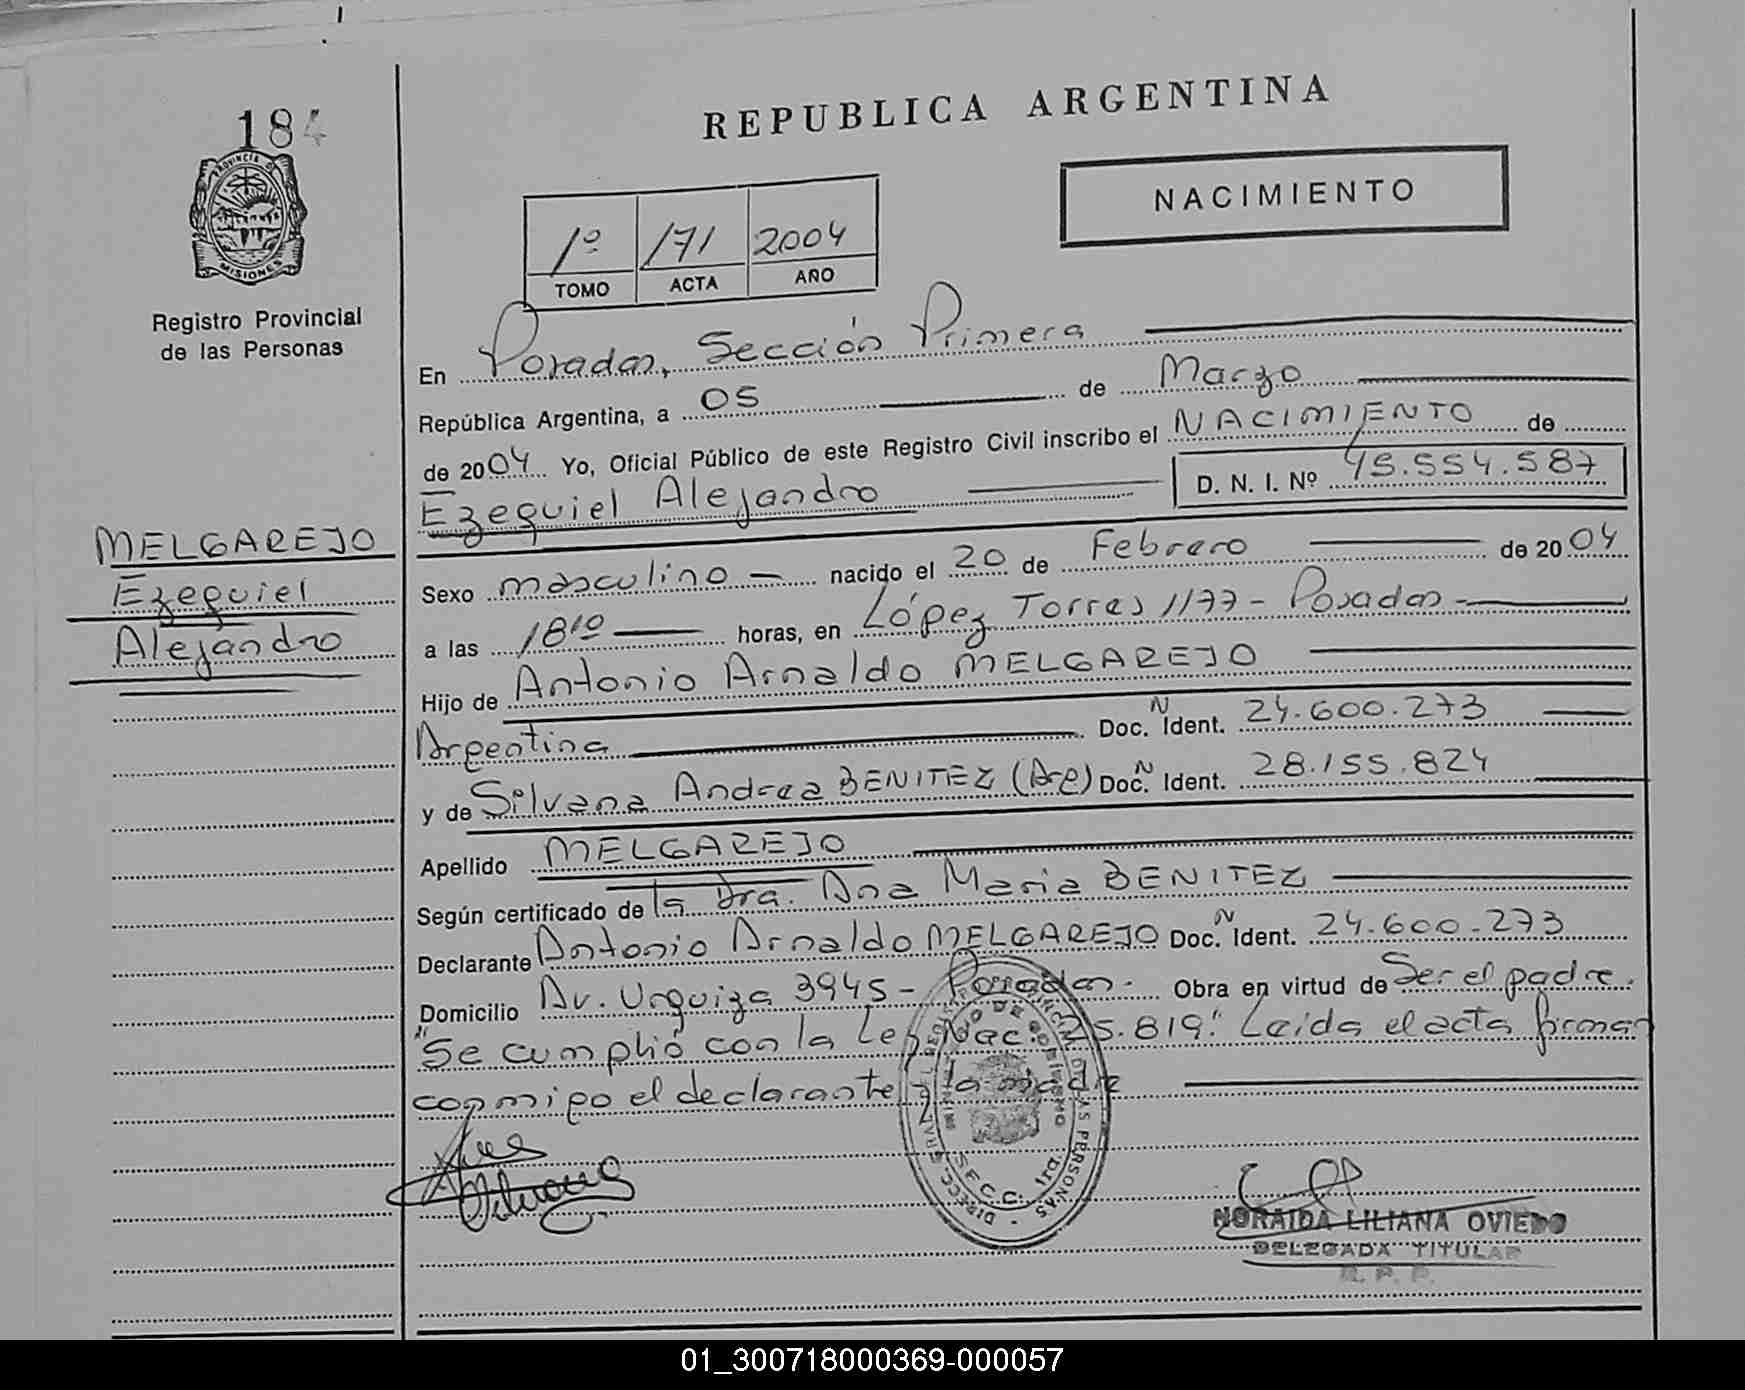 184
PROVINCIA DE
MISIONES
Registro Provincial
de las Personas
REPUBLICA ARGENTINA
NACIMIENTO
1º 171 2004
TOMO ACTA AÑO
En Posadas, Sección Primera
República Argentina, a 05 de Marzo
de 2004 Yo, Oficial Público de este Registro Civil inscribo el NACIMIENTO de
Ezequiel Alejandro D. N. I. Nº 45.554.587
MELGAREJO
Ezequiel
Alejandro
Sexo masculino nacido el 20 de Febrero de 2004
a las 18¹⁰ horas, en López Torres 1177 - Posadas -
Hijo de Antonio Arnaldo MELGAREJO
Argentina Doc. N Ident. 24.600.273
y de Silvana Andrea BENITEZ (Arg) Doc. N Ident. 28.155.824
Apellido MELGAREJO
Según certificado de la Dra. Ana Maria BENITEZ
Declarante Antonio Arnaldo MELGAREJO Doc. N Ident. 24.600.273
Domicilio Av. Urquiza 3945 - Posadas. Obra en virtud de Ser el padre.
"Se cumplió con la Ley Nac. 25.819." Leída el acta firman
conmigo el declarante y la madre
SECC. 1ra.
NORAIDA LILIANA OVIEDO
DELEGADA TITULAR
R. P. P.
01_300718000369-000057